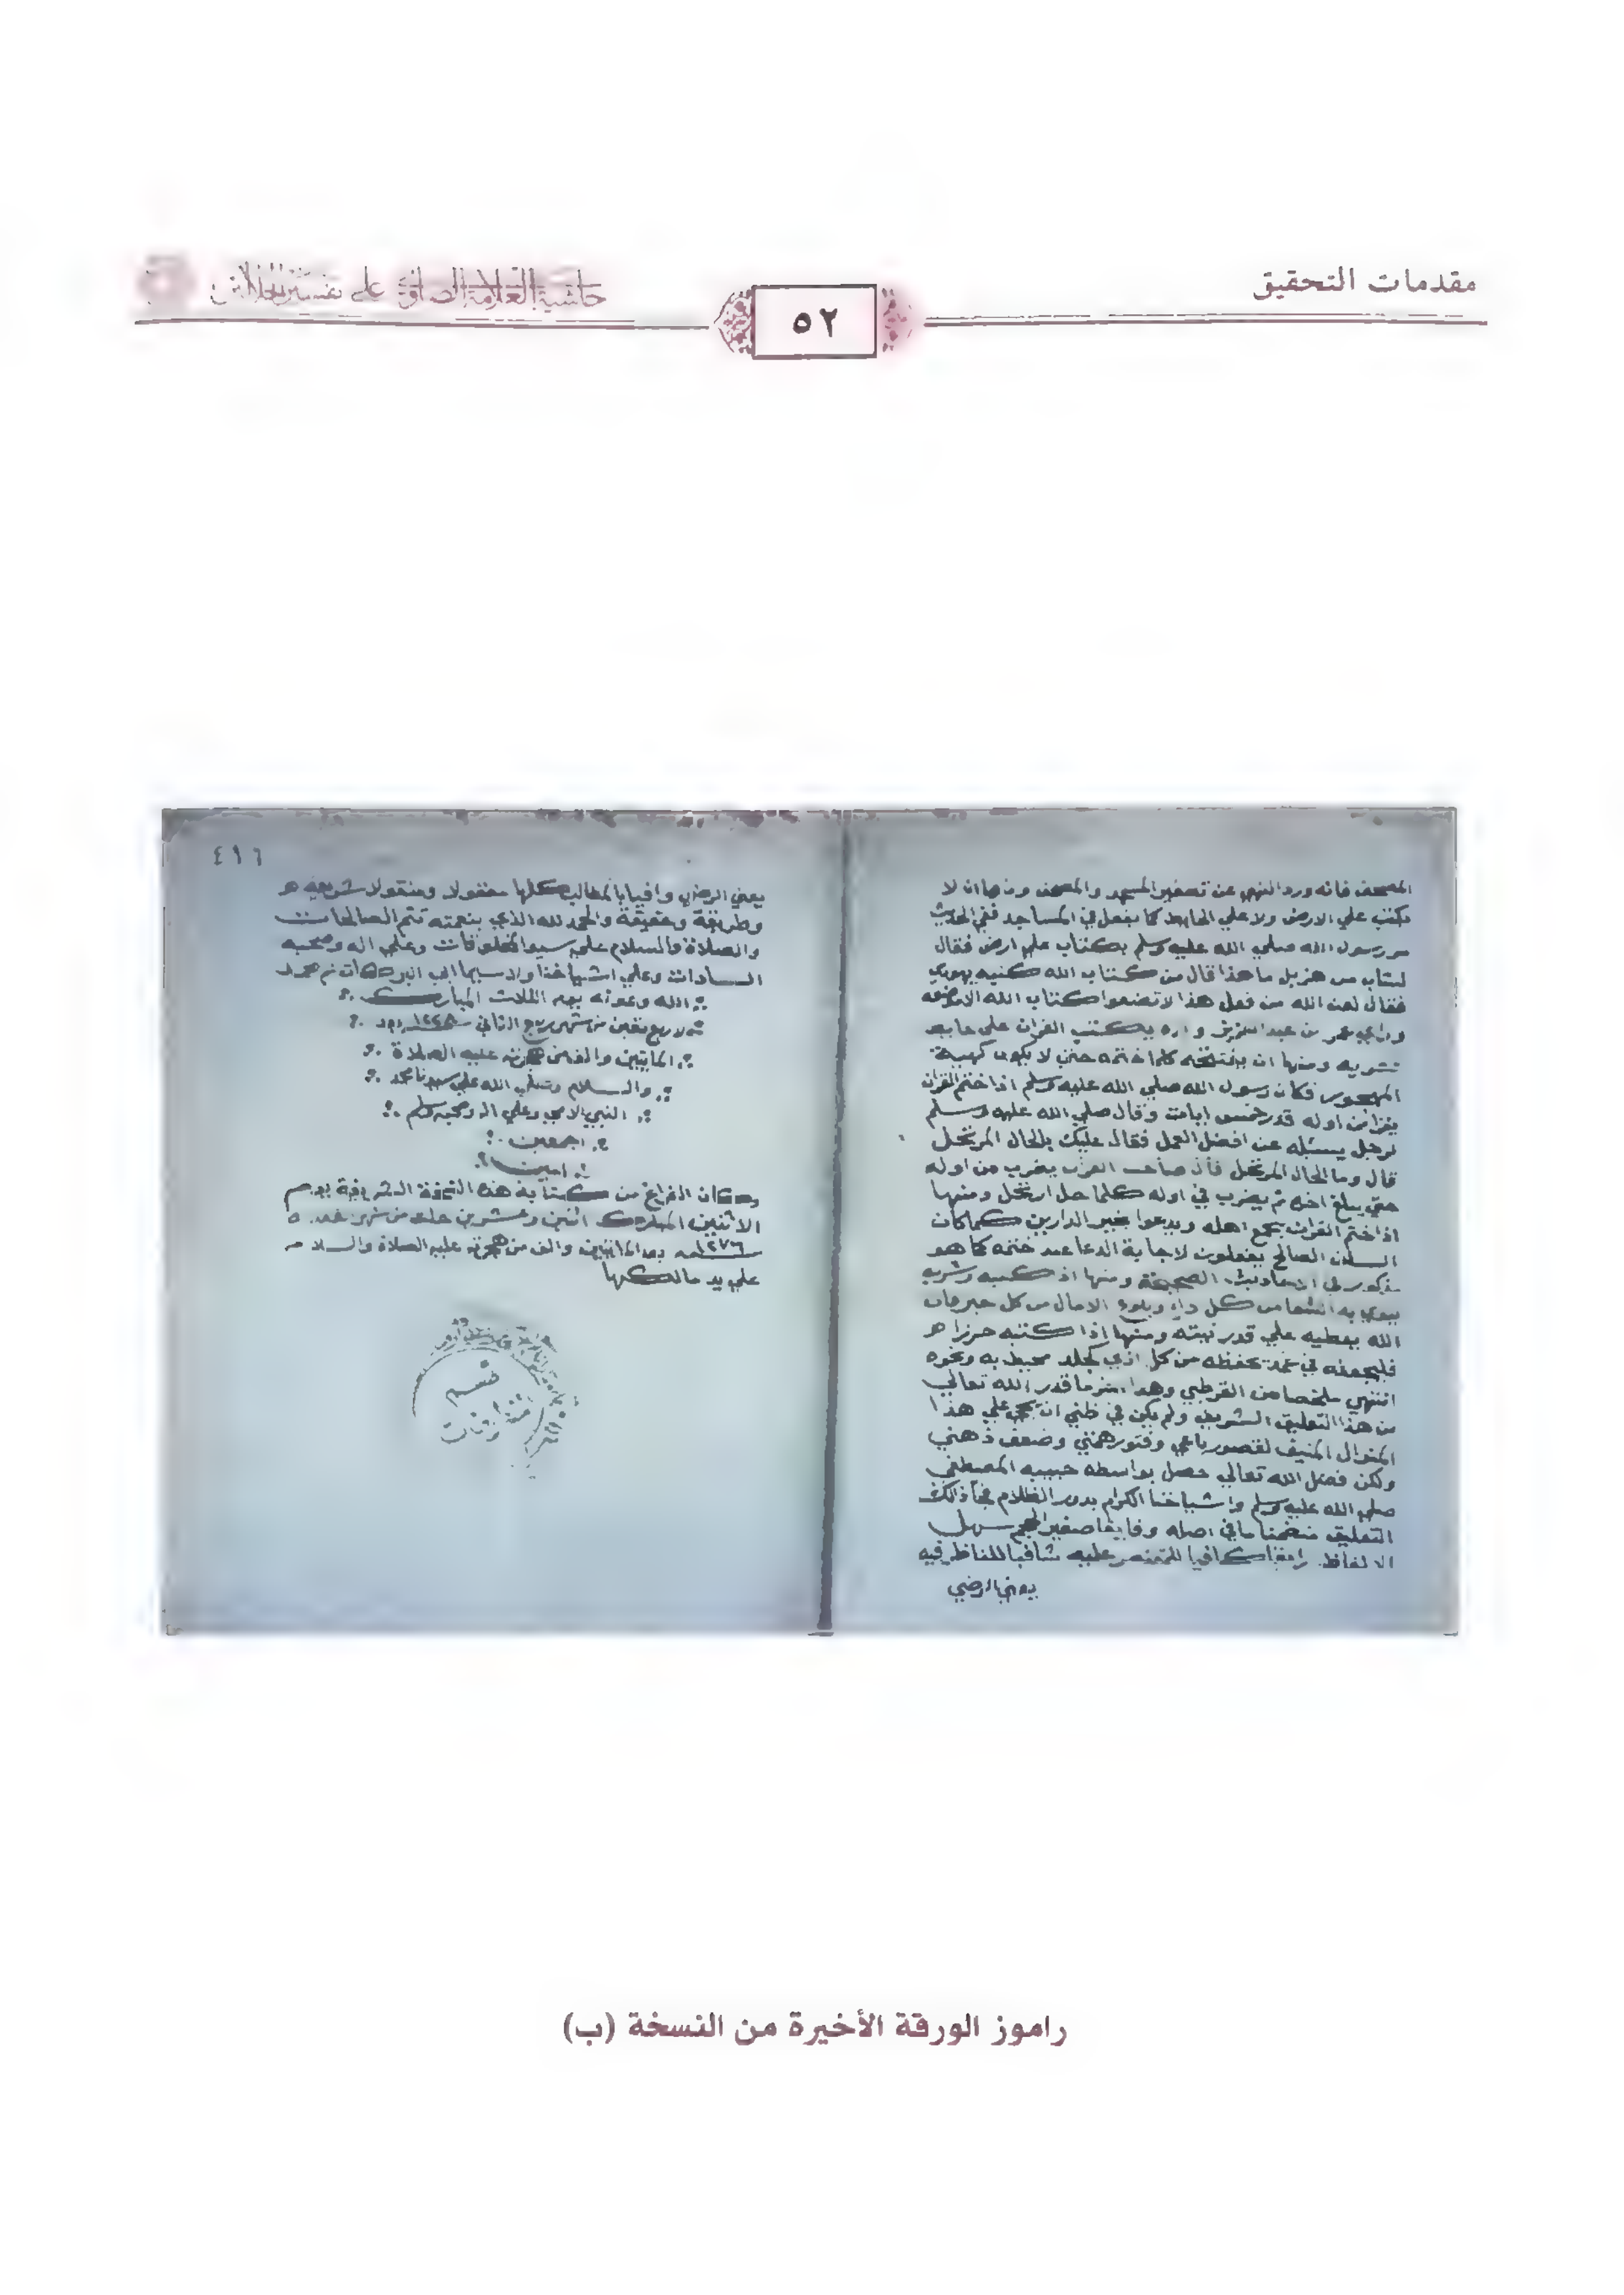 مقدمات التحقيق
٥٢
حاشية العلامة الصاوي على تفسير الجلالين
المصحف فانه ورد النهي عن تصغير المسجد والمصحف ومنها ان لا
يكتب علي الارض ولا علي الحايط كما يفعل في المساجد ففي الحديث
مر رسول الله صلي الله عليه وسلم بكتاب علي ارض فقال
لشاب من هزيل ما هذا قال من كتاب الله كتبه يهودي
فقال لعن الله من فعل هذا لا تضعوا كتاب الله الا موضعه
وراي عمر بن عبد العزيز يكتب القران علي حايط
ومنها ان يفتتحه كلما ختمه حتي لا يكون كهيئة
المهجور فكان رسول الله صلي الله عليه وسلم اذا ختم القران
يقرا من اوله قدر خمس ايات وقال صلي الله عليه وسلم
لرجل يسئله عن افضل العمل فقال عليك بالحال المرتحل
قال وما الحال المرتحل قال صاحب القران يضرب من اوله
حتي يبلغ اخره ثم يضرب في اوله كلما حل ارتحل ومنها
اذا ختم القران يجمع اهله ويدعوا بخير الدارين كما كان
السلف الصالح يفعلون لاجابة الدعا عند ختمه كما هو
مذكور في الاحاديث الصحيحة ومنها اذا كتبه وشربه
ينوي به الشفا من كل داء وبلوغ الامال من كل خير فان
الله يعطيه علي قدر نيته ومنها إذا كتبه حرزا
فليجعله في غمد تحفظه من كل اذي كجلد محيط به ونحوه
انتهي ملخصا من القرطبي وهذا اخر ما قدر الله تعالي
من هذا التعليق الشريف ولم يكن في ظني ان يجي علي هذا
المنوال المنيف لقصور باعي وفتور همتي وضعف ذهني
ولكن فضل الله تعالي حصل بواسطة حبيبه المصطفي
صلي الله عليه وسلم واشياخنا الكرام بدور الظلام فجا ذالك
التعليق متضمنا ما في اصله وفايقا صغير الحجم سهل
الالفاظ كافيا للمقتصر عليه شافيا للناظر فيه
بعين الرضي
٤١٦
بعين الرضي وافيا بالمطالب كلها معقولا ومنقولا شريعة
وطريقة وحقيقة والحمد لله الذي بنعمته تتم الصالحات
والصلاة والسلام علي سيد المخلوقات وعلي اله وصحبه
السادات وعلي اشياخنا ولا سيما ابي البركات تم بحمد
الله وعونه يوم الثلاث المبارك
لاربع بقين من شهر ربيع الثاني ١٢٢٨ بعد
المايتين والف من هجرته عليه الصلاة
والسلام وصلي الله علي سيدنا محمد
النبي الامي وعلي اله وصحبه وسلم
اجمعين
امين
وكان الفراغ من كتابة هذه النسخة الشريفة يوم
الاثنين المبارك اثنين وعشرين خلت من شهر
١٢٧٦ بعد المايتين والف من هجرته عليه الصلاة والسلام
علي يد مالكها
راموز الورقة الأخيرة من النسخة (ب)